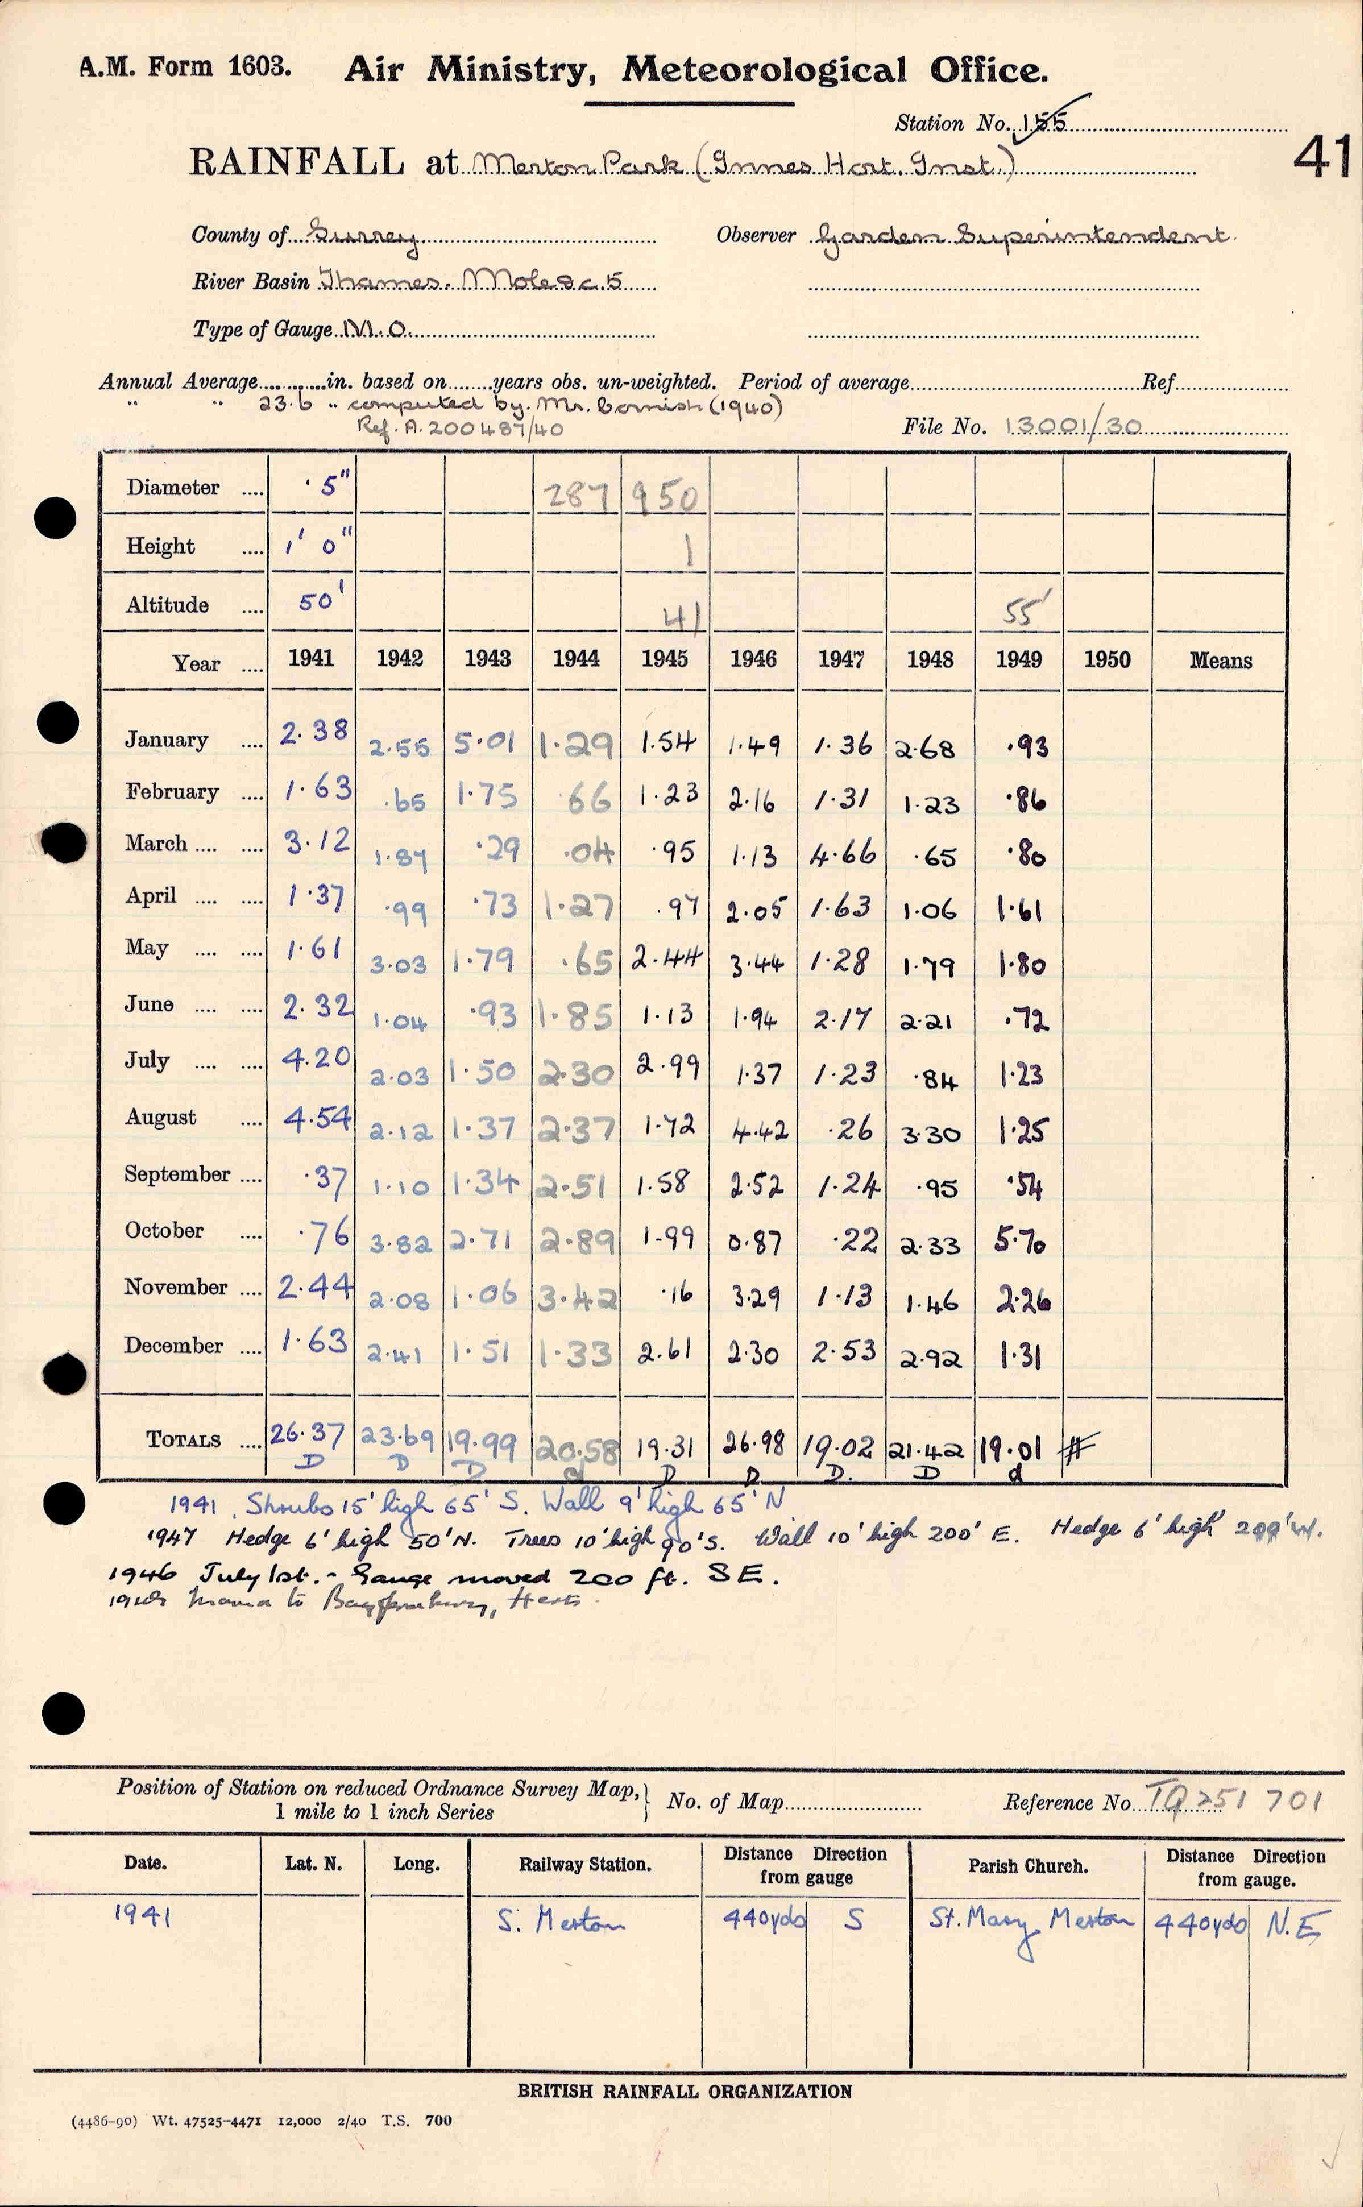 A.M. Form 1603. Air Ministry, Meteorological Office.
Station No. 155
41
RAINFALL at Merton Park (Innes Hort. Inst.)
County of Surrey Observer Garden Superintendent.
River Basin Thames. Mole &c. 5
Type of Gauge M.O.
Annual Average in. based on years obs. un-weighted. Period of average Ref.
" " 23.6 " computed by Mr. Cornish (1940)
Ref. A. 200487/40 File No. 13001/30
Diameter 5" 287 950
Height 1' 0" 1
Altitude 50' 41 55'
Year 1941 1942 1943 1944 1945 1946 1947 1948 1949 1950 Means
January 2.38 2.55 5.01 1.29 1.54 1.49 1.36 2.68 .93
February 1.63 .65 1.75 .66 1.23 2.16 1.31 1.23 .86
March 3.12 1.87 .29 .04 .95 1.13 4.66 .65 .80
April 1.37 .99 .73 1.27 .97 2.05 1.63 1.06 1.61
May 1.61 3.03 1.79 .65 2.44 3.44 1.28 1.79 1.80
June 2.32 1.04 .93 1.85 1.13 1.94 2.17 2.21 .72
July 4.20 2.03 1.50 2.30 2.99 1.37 1.23 .84 1.23
August 4.54 2.12 1.37 2.37 1.72 4.42 .26 3.30 1.25
September .37 1.10 1.34 2.51 1.58 2.52 1.24 .95 .54
October .76 3.82 2.71 2.89 1.99 0.87 .22 2.33 5.70
November 2.44 2.08 1.06 3.42 .16 3.29 1.13 1.46 2.26
December 1.63 2.41 1.51 1.33 2.61 2.30 2.53 2.92 1.31
TOTALS 26.37 23.69 19.99 20.58 19.31 26.98 19.02 21.42 19.01 #
D D D d D D D. D d
1941. Shrubs 15' high 65' S. Wall 9' high 65' N
1947 Hedge 6' high 50' N. Trees 10' high 90' S. Wall 10' high 200' E. Hedge 6' high 200' W.
1946 July 1st. - Gauge moved 200 ft. SE.
to Bayfordbury, Herts.
Position of Station on reduced Ordnance Survey Map,
1 mile to 1 inch Series
No. of Map Reference No. TQ 251 701
Date. Lat. N. Long. Railway Station. Distance Direction from gauge Parish Church. Distance Direction from gauge.
1941 S. Merton 440yds S St. Mary Merton 440yds N.E
BRITISH RAINFALL ORGANIZATION
(4486-90) Wt. 47525-4471 12,000 2/40 T.S. 700